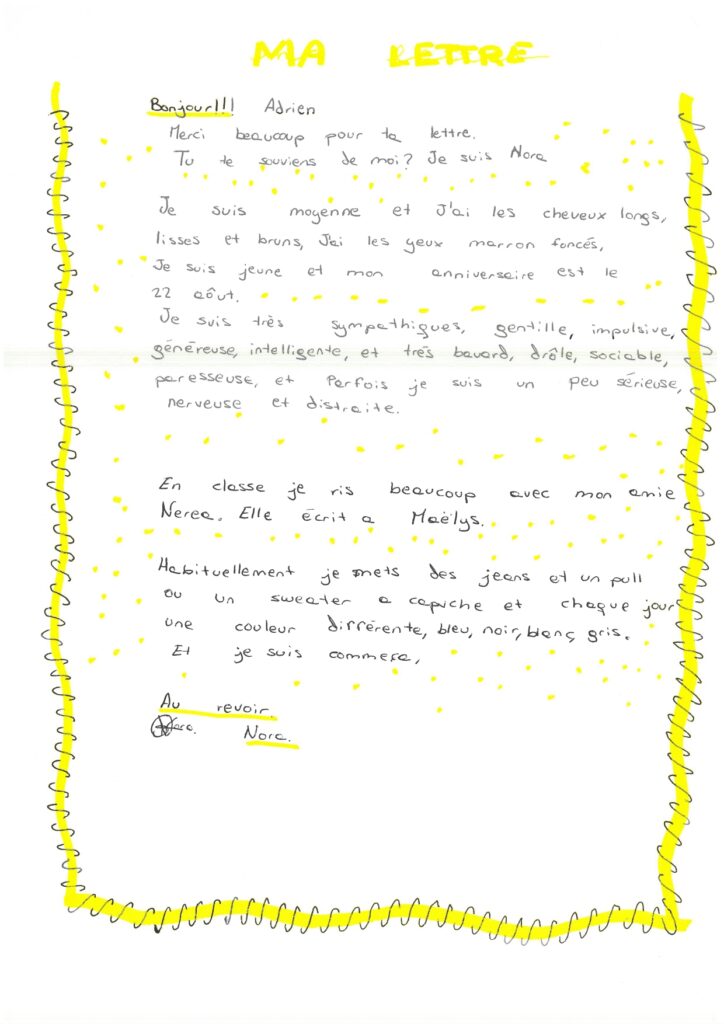 MA LETTRE
Bonjour!!! Adrien
Merci beaucoup pour ta lettre.
Tu te souviens de moi? Je suis Nora
Je suis moyenne et J'ai les cheveux longs,
lisses et bruns, J'ai les yeux marron foncés,
Je suis jeune et mon anniversaire est le
22 aôut.
Je suis très sympathiques, gentille, impulsive,
généreuse, intelligente, et très bavard, drôle, sociable,
paresseuse, et Parfois je suis un peu sérieuse,
nerveuse et distraite.
En classe je ris beaucoup avec mon amie
Nerea. Elle écrit a Maëlys.
Habituellement je mets des jeans et un pull
ou un sweater a capuche et chaque jour
une couleur différente, bleu, noir, blanc, gris.
Et je suis comme
Au revoir.
Nora.